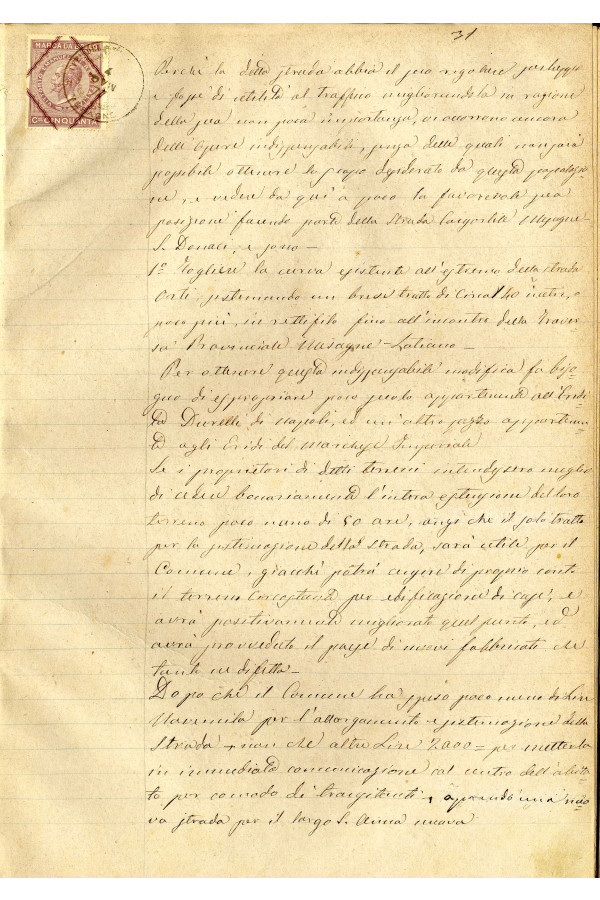 31
MARCA DA BOLLO
CI CINQUANTA
Perchè la detta strada abbia il suo regolare passaggio
e sia di utilità al traffico migliorando la in ragione
della sua non poca importanza, vi occorrono ancora
delle opere indispensabili, senza delle quali non sarà
possibile ottenere lo scopo desiderato da questa popolazio
ne, e vedere da qui a poco la favorevole sua
posizione facendo parte della Strada Mesagne-
S. Donaci, e sono-
1º Togliere la curva esistente all'estremo della strada
Orti, sistemando un breve tratto di circa 140 metri, o
poco più, in rettifilo fino all'incontro della Traver
sa Provinciale Mesagne-Latiano-
Per ottenere questa indispensabile modifica fa biso
gno di espropriare poco suolo appartenente all'Eredi
tà Durelli di Napoli, ed un'altro pezzo appartenen
te agli Eredi del Marchese Imperiale
Se i proprietari di detti terreni intendessero meglio
di cedere bonariamente l'intera estensione del loro
terreno poco meno di 50 are, anzi che il solo tratto
per la sistemazione della strada, sarà utile per il
Comune, giacchè potrà cedere di proprio conto
il terreno per edificazione di case, e
avrà positivamente migliorato quel punto, ed
avrà provveduto il paese di nuovi fabbricati che
tanto ne difetta-
Dopo che il Comune ha speso poco meno di Lire
Novemila per l'allargamento e sistemazione della
Strada, non che altre Lire 7,000= per metterla
in immediata comunicazione col centro dell'abita
to per comodo di transitanti, aprendo una nuo
va strada per il largo S. Anna nuova